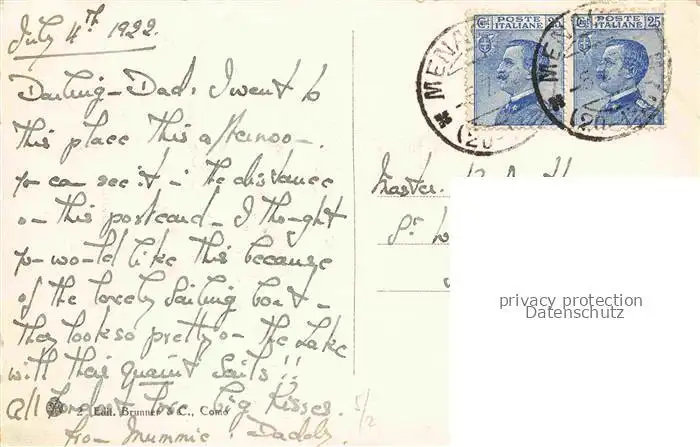 July 4th 1922.
Darling Dad: I went to
this place this afternoon.
you can see it in the distance
on this postcard. I thought
you would like this because
of the lovely Sailing boat.
they look so pretty on the Lake
with their quaint Sails!!
All fondest love big Kisses.
from Mummie & Daddy.
2 Edit. Brunner & C., Como
5/2
POSTE ITALIANE
POSTE ITALIANE
25
MENA
MENA
(20
(20-
Master.
privacy protection
Datenschutz